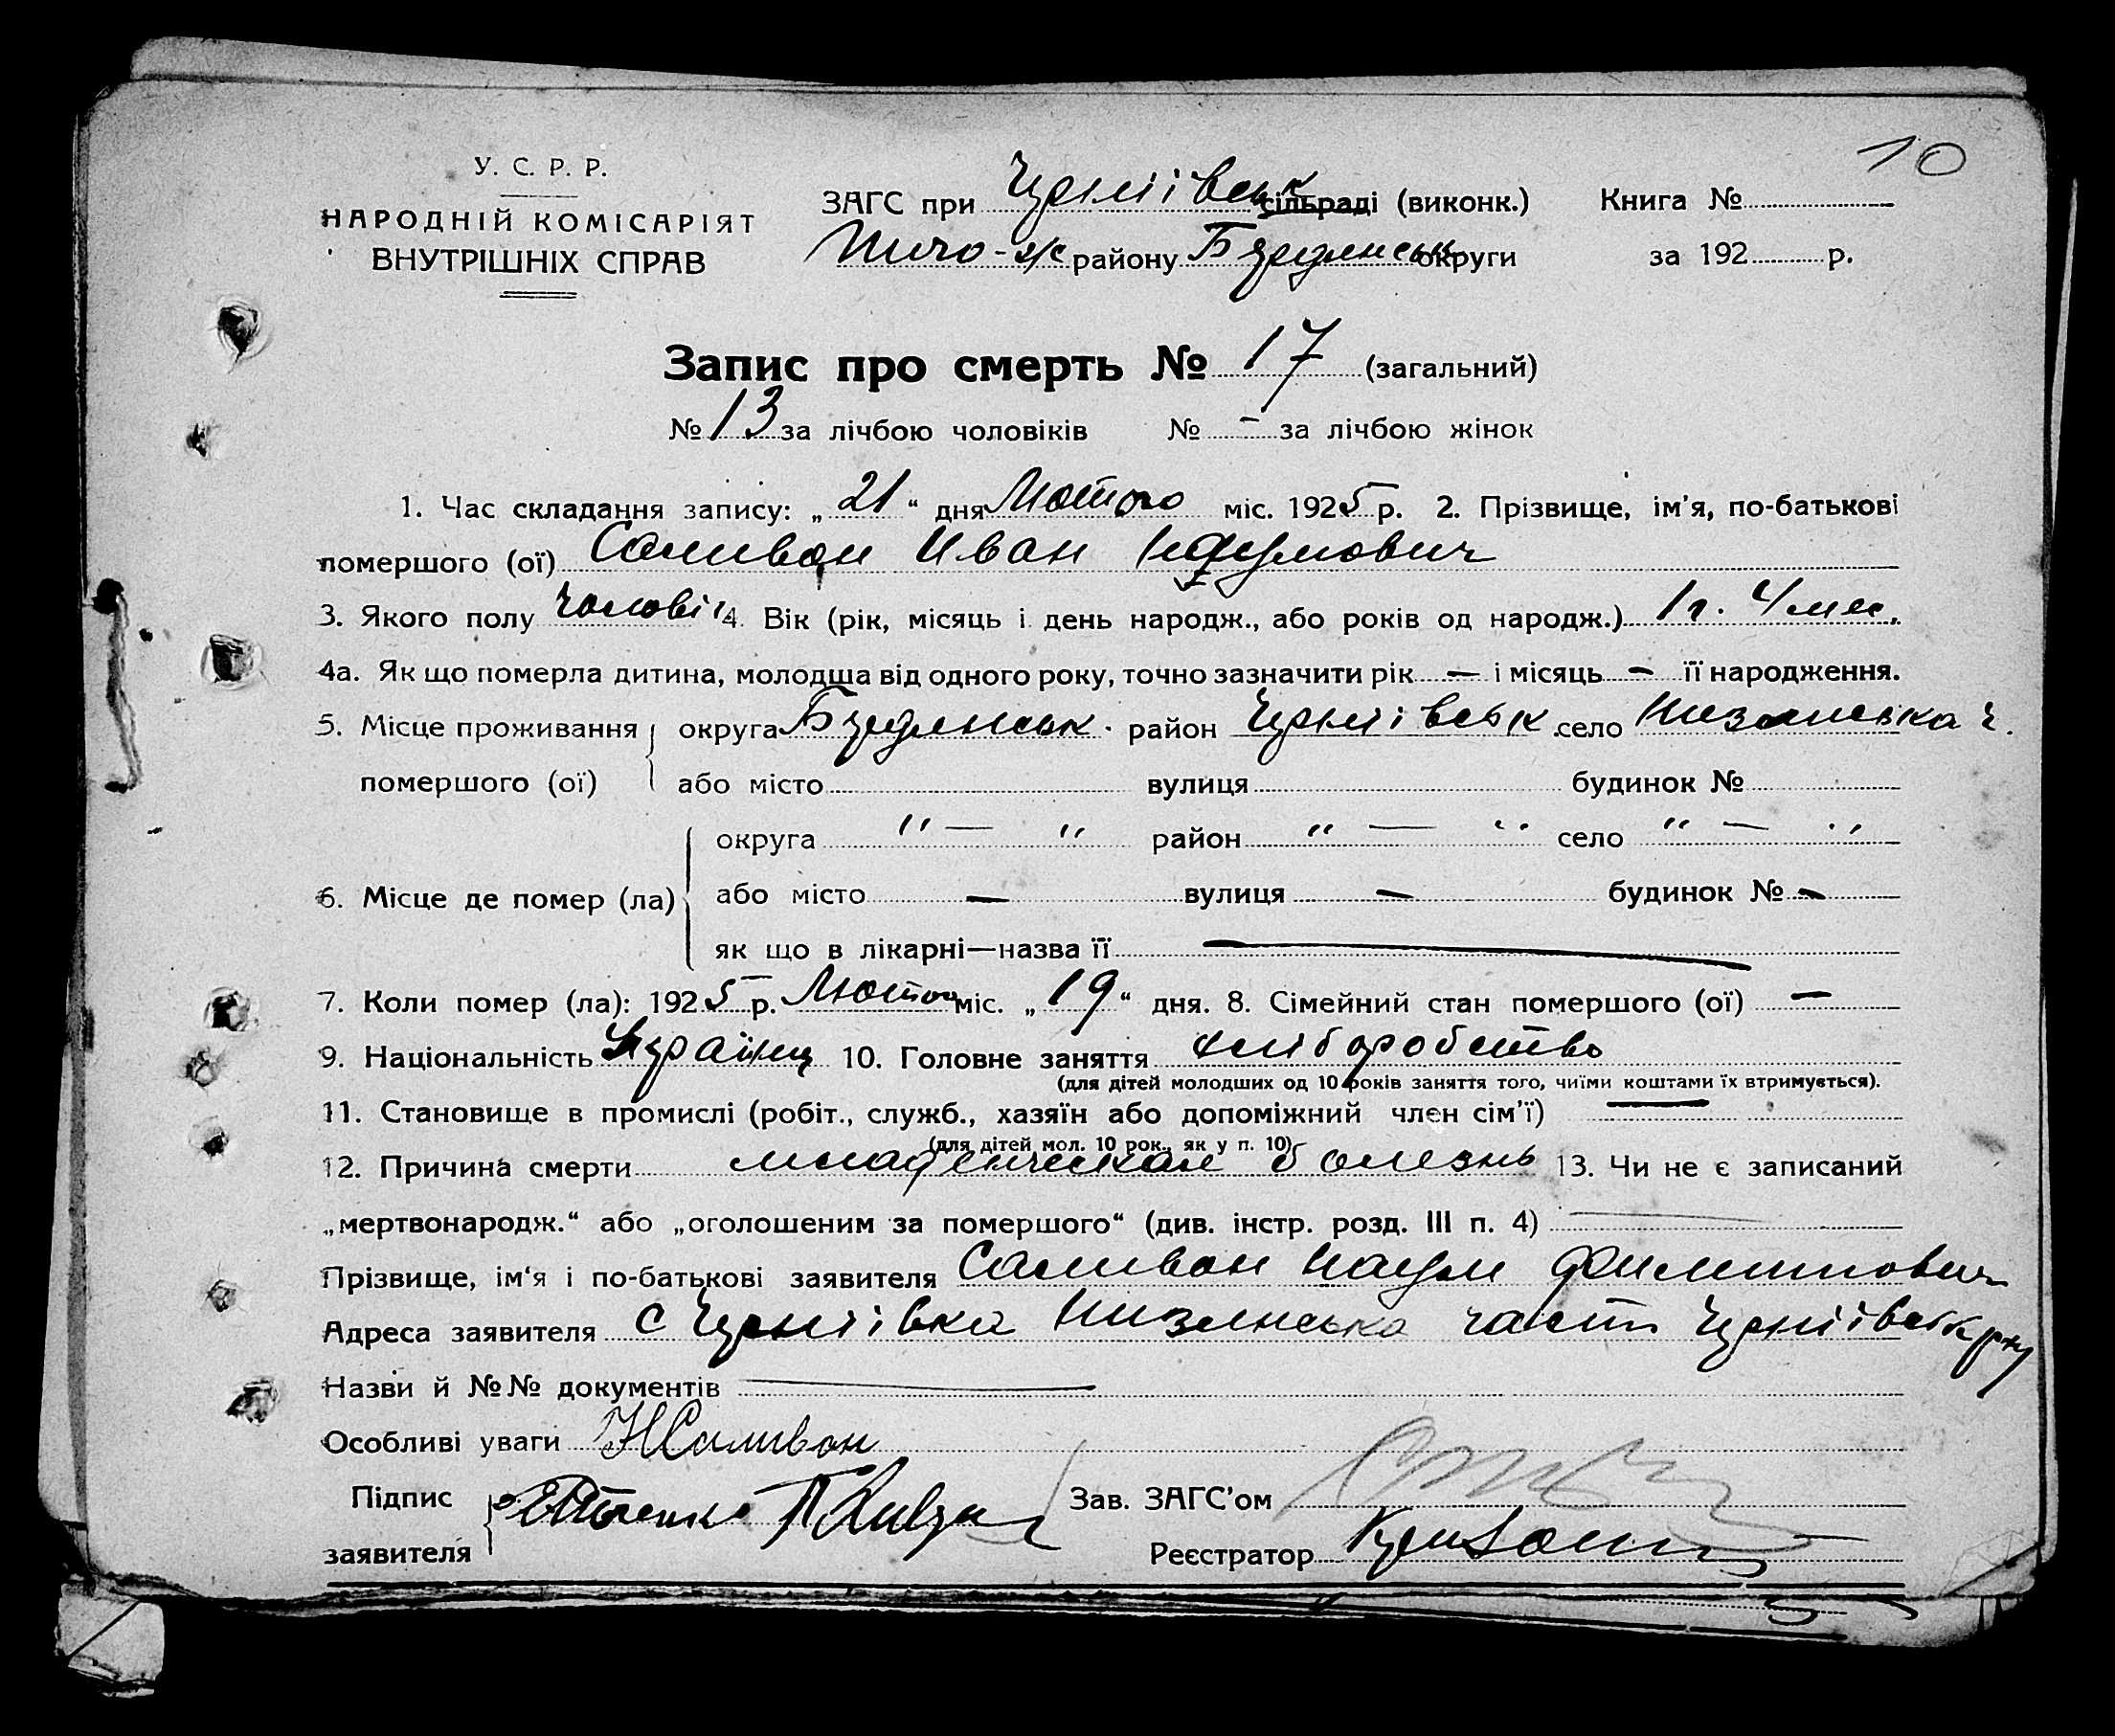 10
У. С. Р. Р.
НАРОДНІЙ КОМІСАРІЯТ
ВНУТРІШНІХ СПРАВ
ЗАГС при сільраді (виконк.) Книга №
району округи за 192 р.
Запис про смерть № 17 (загальний)
№ 13 за лічбою чоловіків № - за лічбою жінок
1. Час складання запису: „21“ дня Лютого міс. 1925 р. 2. Прізвище, ім'я, по-батькові
помершого (ої) Саливон Иван
3. Якого полу чоловік 4. Вік (рік, місяць і день народж., або років од народж.) 1 г. 4 мес.
4а. Як що померла дитина, молодща від одного року, точно зазначити рік — і місяць — її народження.
5. Місце проживання округа район село
помершого (ої) або місто вулиця будинок №
округа " — " район " — " село " — "
6. Місце де помер (ла) або місто — вулиця — будинок № —
як що в лікарні—назва її —
7. Коли помер (ла): 1925 р. Лютого міс. „19“ дня. 8. Сімейний стан помершого (ої) —
9. Національність Українц 10. Головне заняття хліборобство
(для дітей молодших од 10 років заняття того, чиїми коштами їх втримується).
11. Становище в промислі (робіт., служб., хазяїн або допоміжний член сім'ї) —
(для дітей мол. 10 рок., як у п. 10)
12. Причина смерти младенческая болезнь 13. Чи не є записаний
„мертвонародж.“ або „оголошеним за помершого“ (див. інстр. розд. III п. 4) —
Прізвище, ім'я і по-батькові заявителя Саливон Наум Филиппович
Адреса заявителя с
Назви й №№ документів —
Особливі уваги НСаливон
Підпис Зав. ЗАГС'ом
заявителя Реєстратор